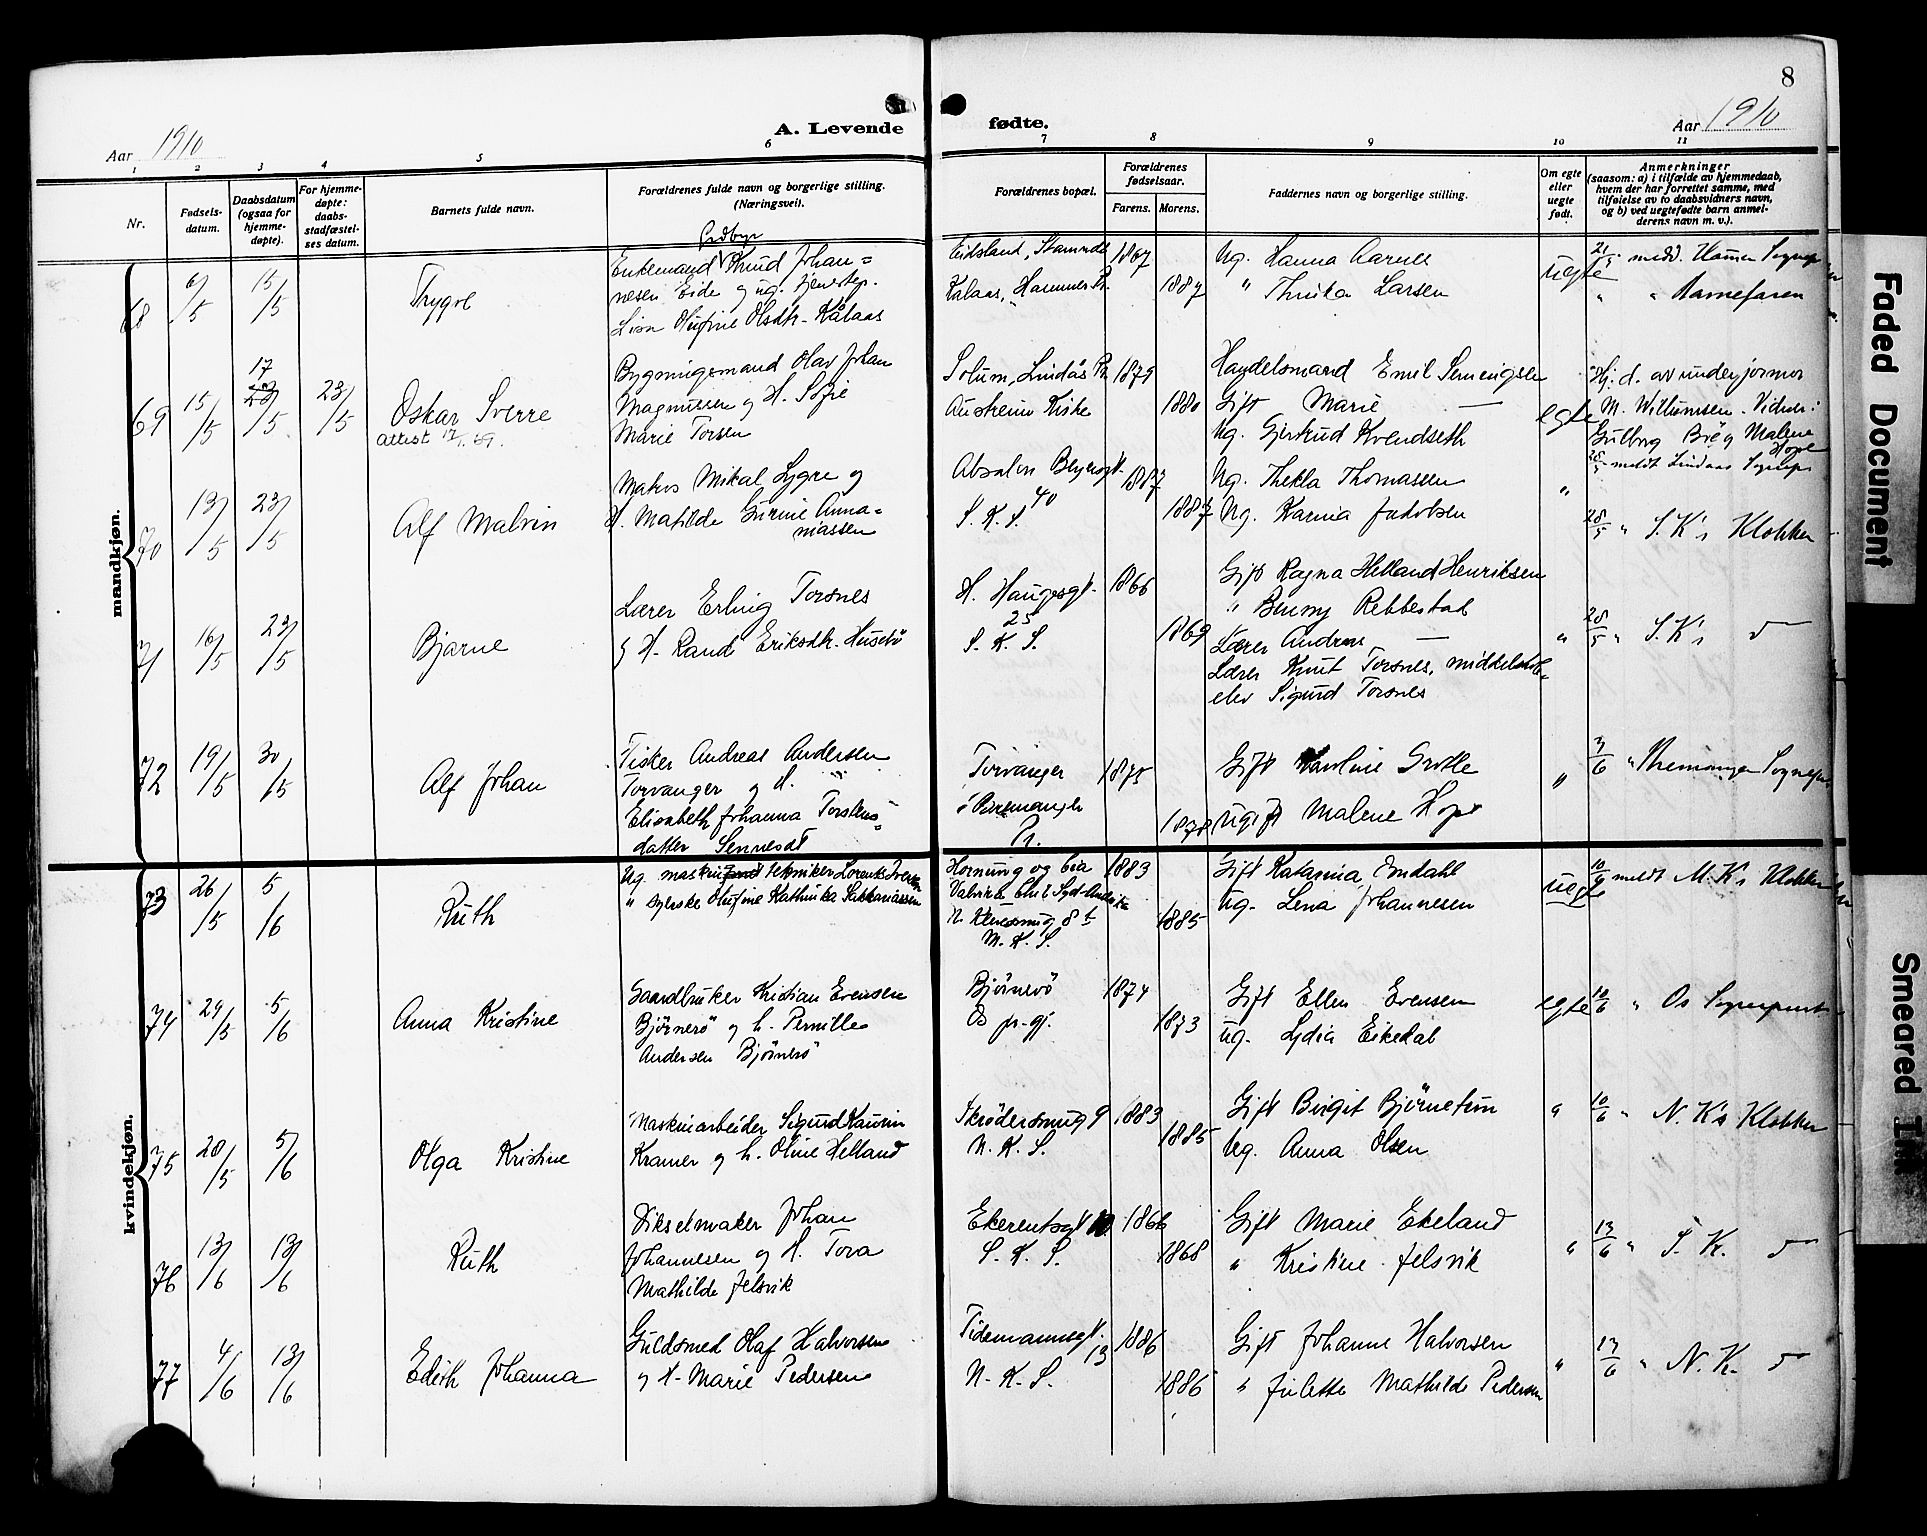 8
Aar 1910
A. Levende
fødte.
Aar 1910
1 2 3 4 5 6 7 8 9 10 11
Nr.
Fødsels-
datum.
Daabsdatum
(ogsaa for
hjemme-
døpte).
For hjemme-
døpte:
daabs-
stadfæstel-
ses datum.
Barnets fulde navn.
Forældrenes fulde navn og borgerlige stilling.
(Næringsvei).
Forældrenes bopæl.
Forældrenes
fødselsaar.
Farens. Morens.
Faddernes navn og borgerlige stilling.
Om egte
eller
uegte
født.
Anmerkninger
(saasom: a) i tilfælde av hjemmedaab,
hvem der har forrettet samme, med
tilføielse av to daabsvidners navn,
og b) ved uegtefødte barn anmel-
derens navn m. v.).
mandkjøn.
68
6/5
15/5
Trygve
Enkemand Knud Johan=
nesen Eide og ug. tjenestep.
Olufine Olsdtr. Kalaas
Eidsland, Stamnes
Kalaas, Hammer Pr.
1867
1887
Ug. Hanna Aarnes
" Thrika Larsen
uegte
21/5 medd. Hammer Sognepr
" " Barnefaren
69
15/5
17
23/5
23/5
Oskar Sverre
Attest
Bygningsmand Olav Johan
Magnussen og H. Sofie
Marie Torsen
Solum, Lindås Pr
Austreim Kirke
1879
1880
Handelsmand Emil
Gift Marie —
Ug. Gjertrud Kvendseth
egte
Hj. d. av underjormor
M. Willumsen. Vidner:
Gulborg og Malene
Hope
28/5 meldt Lindaas Sognepr
70
13/5
23/5
Alf Malvin
Matros Mikal Lygre og
H. Matilde Gurine Anna=
niassen
Absalon Beyersgt.
40
S. K. S.
1887
1887
Ug. Thekla Thomassen
Ug. Karina Jakobsen
"
28/5 " S. K's Klokker
71
16/5
23/5
Bjarne
Lærer Erling Torsnes
g H. Rand Eriksdtr. Husebö
H. Haugesgt.
25
S. K. S.
1866
1869
Gift Ragna Helland Henriksen
" Benny Rebbestad
Lærer Andreas —
Lærer Knut Torsnes, middelskole-
elev Sigurd Torsnes
"
28/5 " S. K's
72
19/5
30/5
Alf Johan
Fisker Andreas Andersen
Torvanger og H.
Elisabeth Johanna Torstens=
datter Sennesdt
Torvanger
i Bremanger
Pr.
1875
1878
Gift Karoline Grotle
Ugift Malene Hope
"
3/6 " Bremanger Sognepr.
kvindekjøn.
73
26/5
5/6
Ruth
Ug. maskintekniker Lorents Iversen
" syerske Olufine Kathinka Sakkariassen
Hornung og bia
Valvika Chile Syd-Amerika
N. 8 b
M. K. S.
1883
1885
Gift Katarina Endahl
Ug. Lena Johannesen
uegte
10/6 meldt M. K's Klokker
74
24/5
5/6
Anna Kristine
Gaardbruker Kristian Evensen
Björnerö og h. Pernille
Andersen Björnerö
Björnerö
Os pr.gj.
1874
1873
Gift Ellen Evensen
Ug. Lydia Eikedal
egte
10/6 " Os Sogneprest
75
28/5
5/6
Olga Kristine
Maskinarbeider Sigurd
Kramer og h. Oline Helland
Skrödersmug 9
N. K. S.
1883
1885
Gift Birgit Björnetun
Ug. Anna Olsen
"
10/6 " N. K's Klokker
76
13/6
13/6
Ruth
Dikselmaker Johan
Johannesen og H. Tora
Mathilde Jelsvik
S. K. S.
1866
1868
Gift Marie Ekeland
" Kristine Jelsvik
"
13/6 " S. K.
77
4/6
13/6
Edith Johanna
Guldsmed Olaf Halvorsen
og H. Marie Pedersen
Tidemannsgt.
13
N. K. S.
1886
1886
Gift Johanne Halvorsen
" Julette Mathilde Pedersen
"
13/6 " N. K.
Faded Document
Smeared Ink